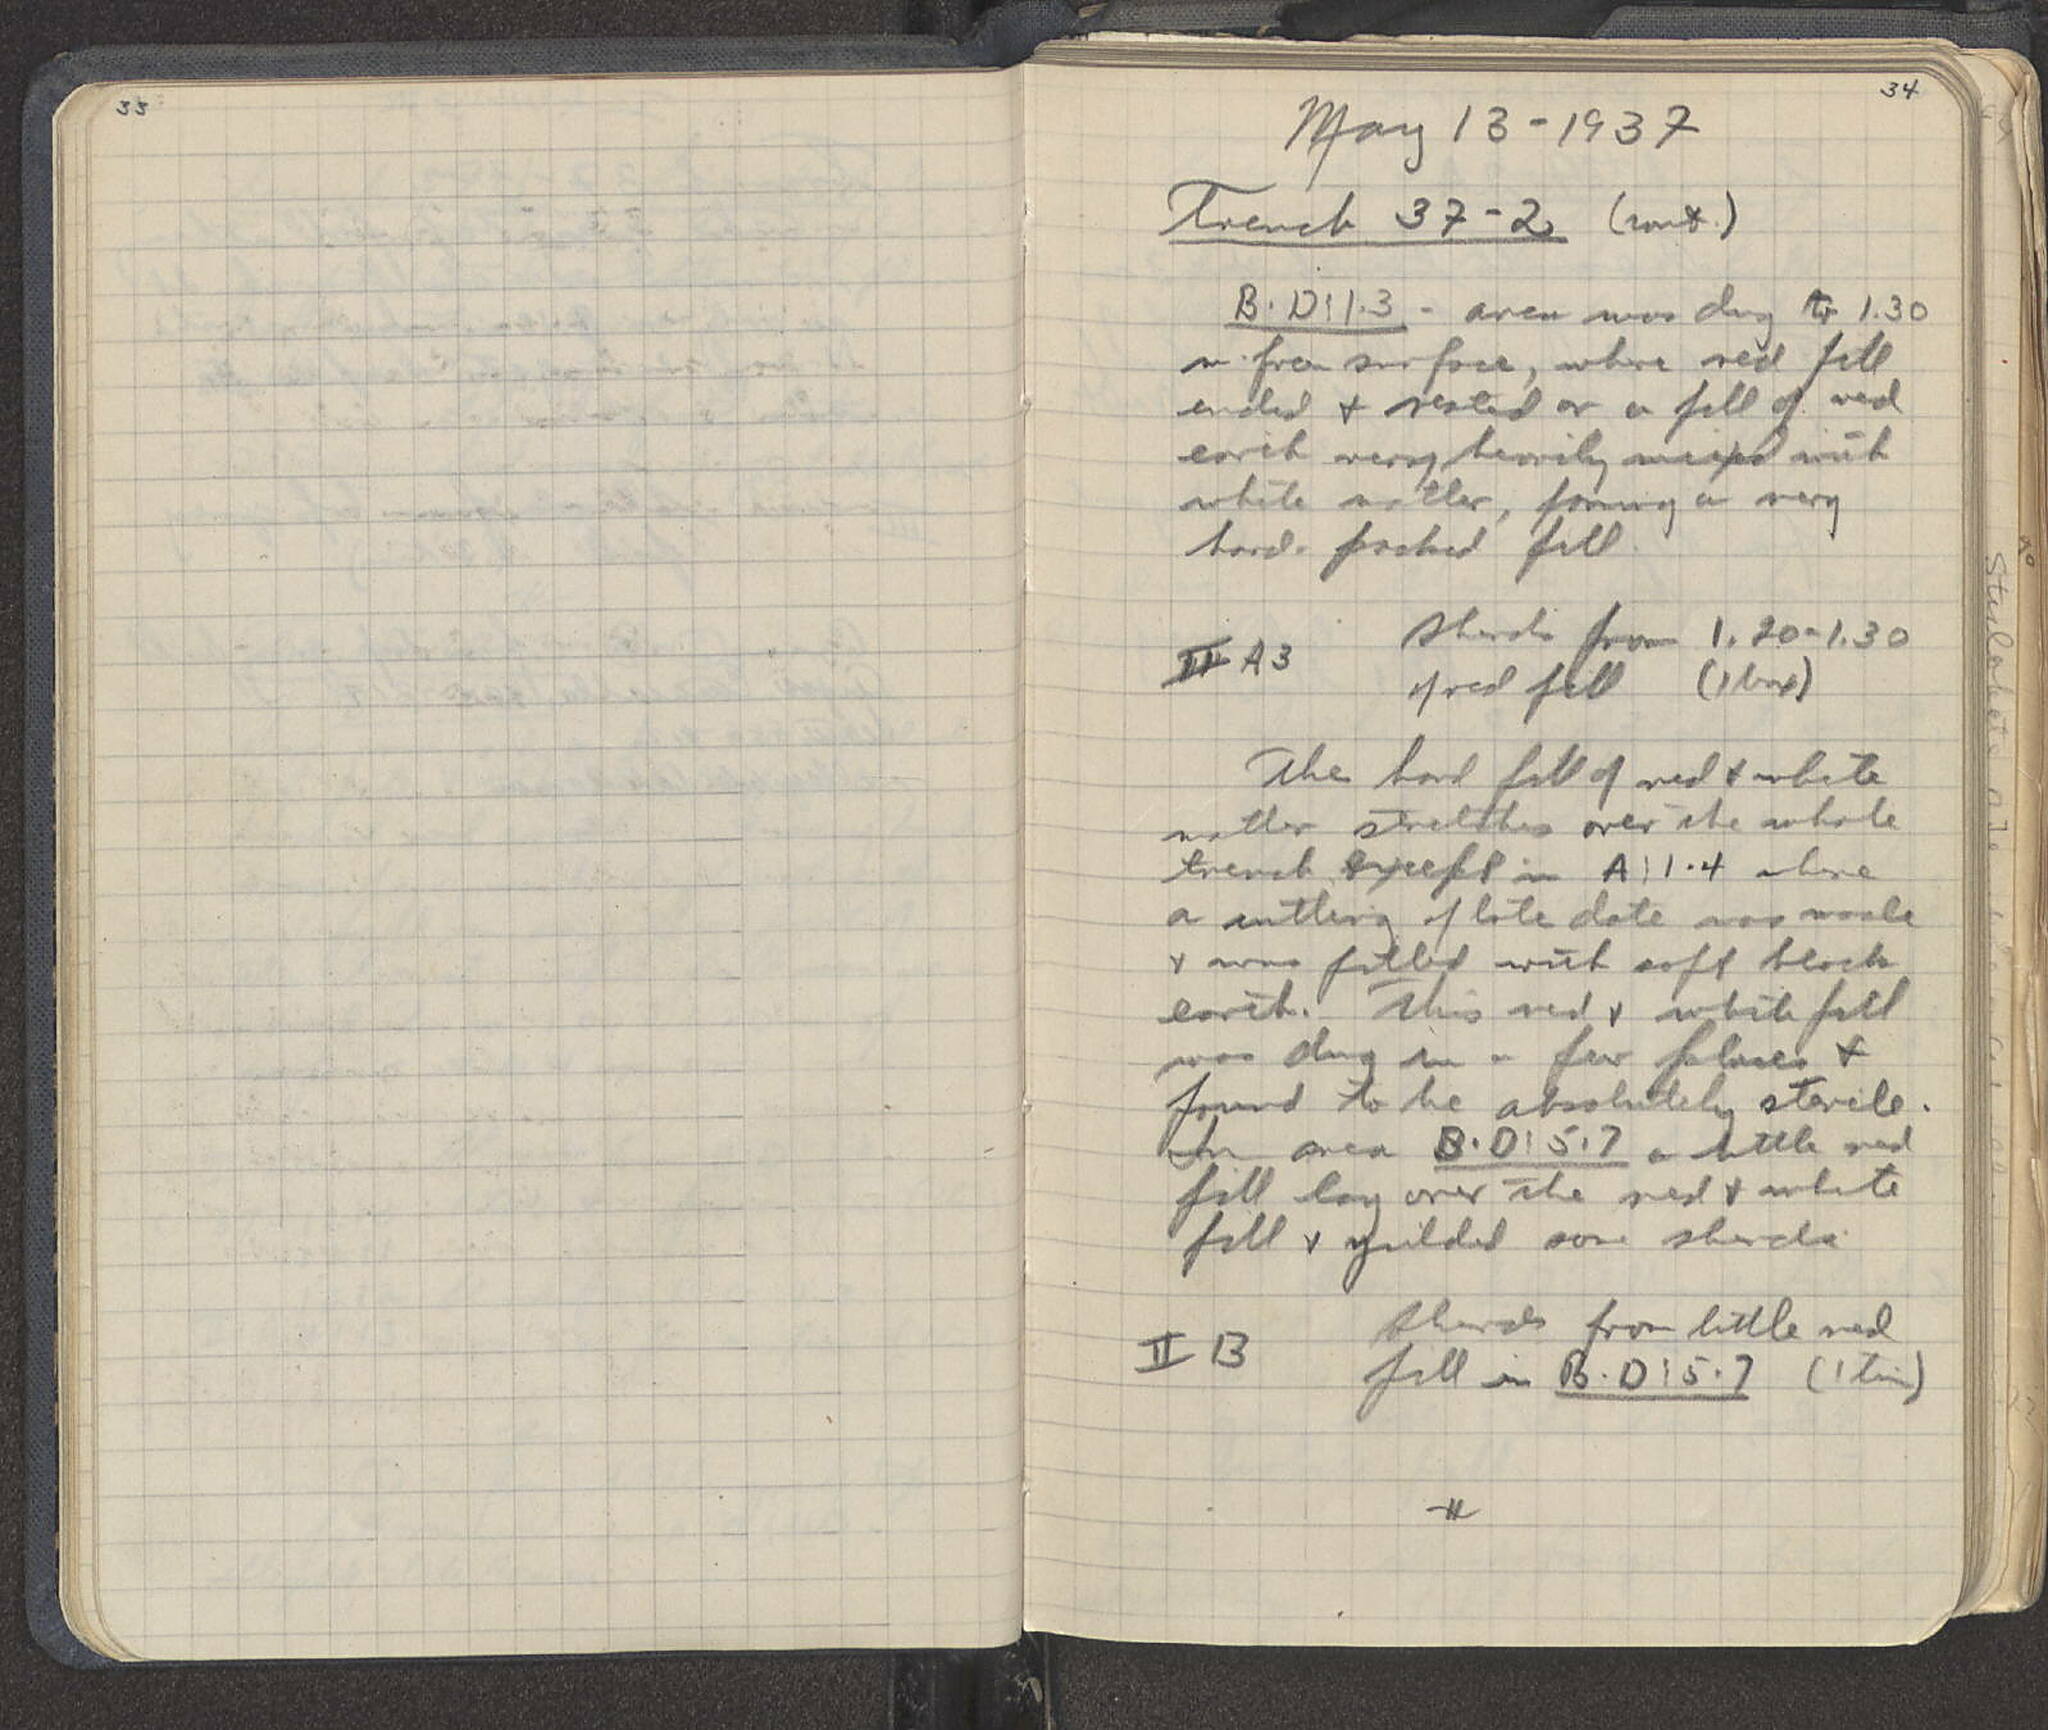 33
34
May 13-1937
Trench 37-2 (cont.)
B·D:1·3 - area was dug to 1.30
m. from surface, where red fill
ended & rested on a fill of red
earth very heavily mixed with
white matter, forming a very
hard-packed fill.
II A3
Sherds from 1.20-1.30
of red fill (1 box)
The hard fill of red & white
matter stretches over the whole
trench except in A:1·4 where
a cutting of late date was made
& was filled with soft black
earth. This red & white fill
was dug in a few places &
found to be absolutely sterile.
In area B·D:5·7 a little red
fill lay over the red & white
fill & yielded some sherds
II B
Sherds from little red
fill in B·D:5·7 (1 tin)